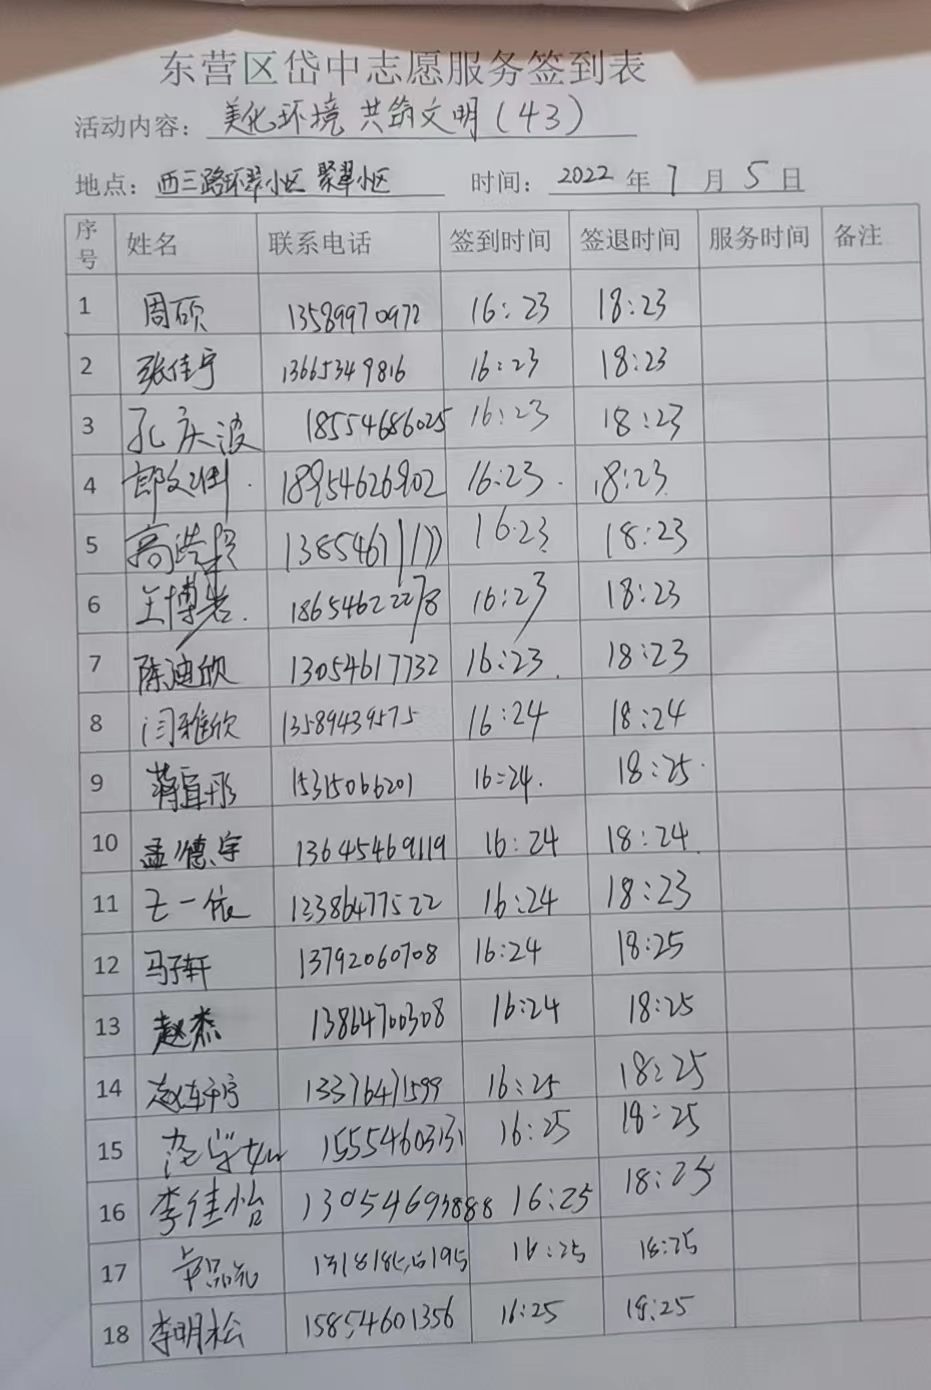 东营区岱中志愿服务签到表
活动内容: 美化环境 共筑文明(43)
地点: 西三路环翠小区 聚翠小区 时间: 2022 年 7 月 5 日
序号 姓名 联系电话 签到时间 签退时间 服务时间 备注
1 周硕 13589970972 16:23 18:23
2 张佳宇 13665349816 16:23 18:23
3 孔庆波 18554686025 16:23 18:23
4 18954626902 16:23 18:23
5 高浩 16:23 18:23
6 王博岩 18654622278 16:23 18:23
7 陈迪欣 13054617732 16:23 18:23
8 闫雅欣 13589439575 16:24 18:24
9 蒋宜彤 15315066201 16:24 18:25
10 孟德宇 13645469119 16:24 18:24
11 王一依 13386477522 16:24 18:23
12 马子轩 13792060708 16:24 18:25
13 赵杰 13864700308 16:24 18:25
14 赵轩宇 13376471599 16:25 18:25
15 范学 15554603131 16:25 18:25
16 李佳怡 13054693888 16:25 18:25
17 16:25 18:25
18 李明松 15854601356 16:25 18:25